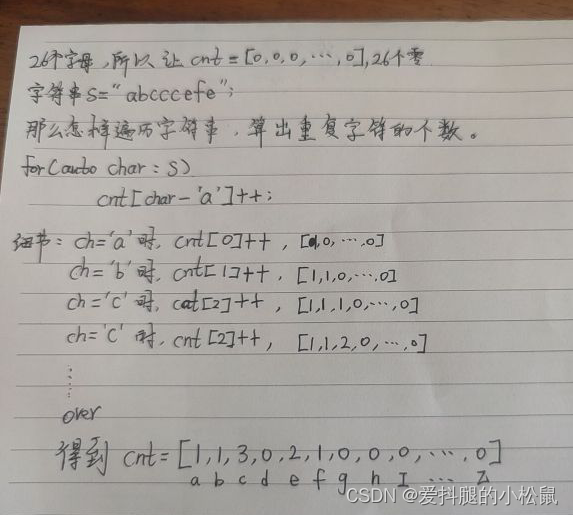 26个字母,所以让 cnt = [0,0,0,…,0],26个零
字符串S="abcccefe";
那么怎样遍历字符串,算出重复字符的个数。
for(auto char : S)
cnt[char-'a']++;
细节: ch='a'时, cnt[0]++, [1,0,…,0]
ch='b'时, cnt[1]++, [1,1,0,…,0]
ch='c'时, cnt[2]++, [1,1,1,0,…,0]
ch='c'时, cnt[2]++, [1,1,2,0,…,0]
over
得到 cnt=[1,1,3,0,2,1,0,0,0,…,0]
a b c d e f g h I … Z
CSDN @爱抖腿的小松鼠